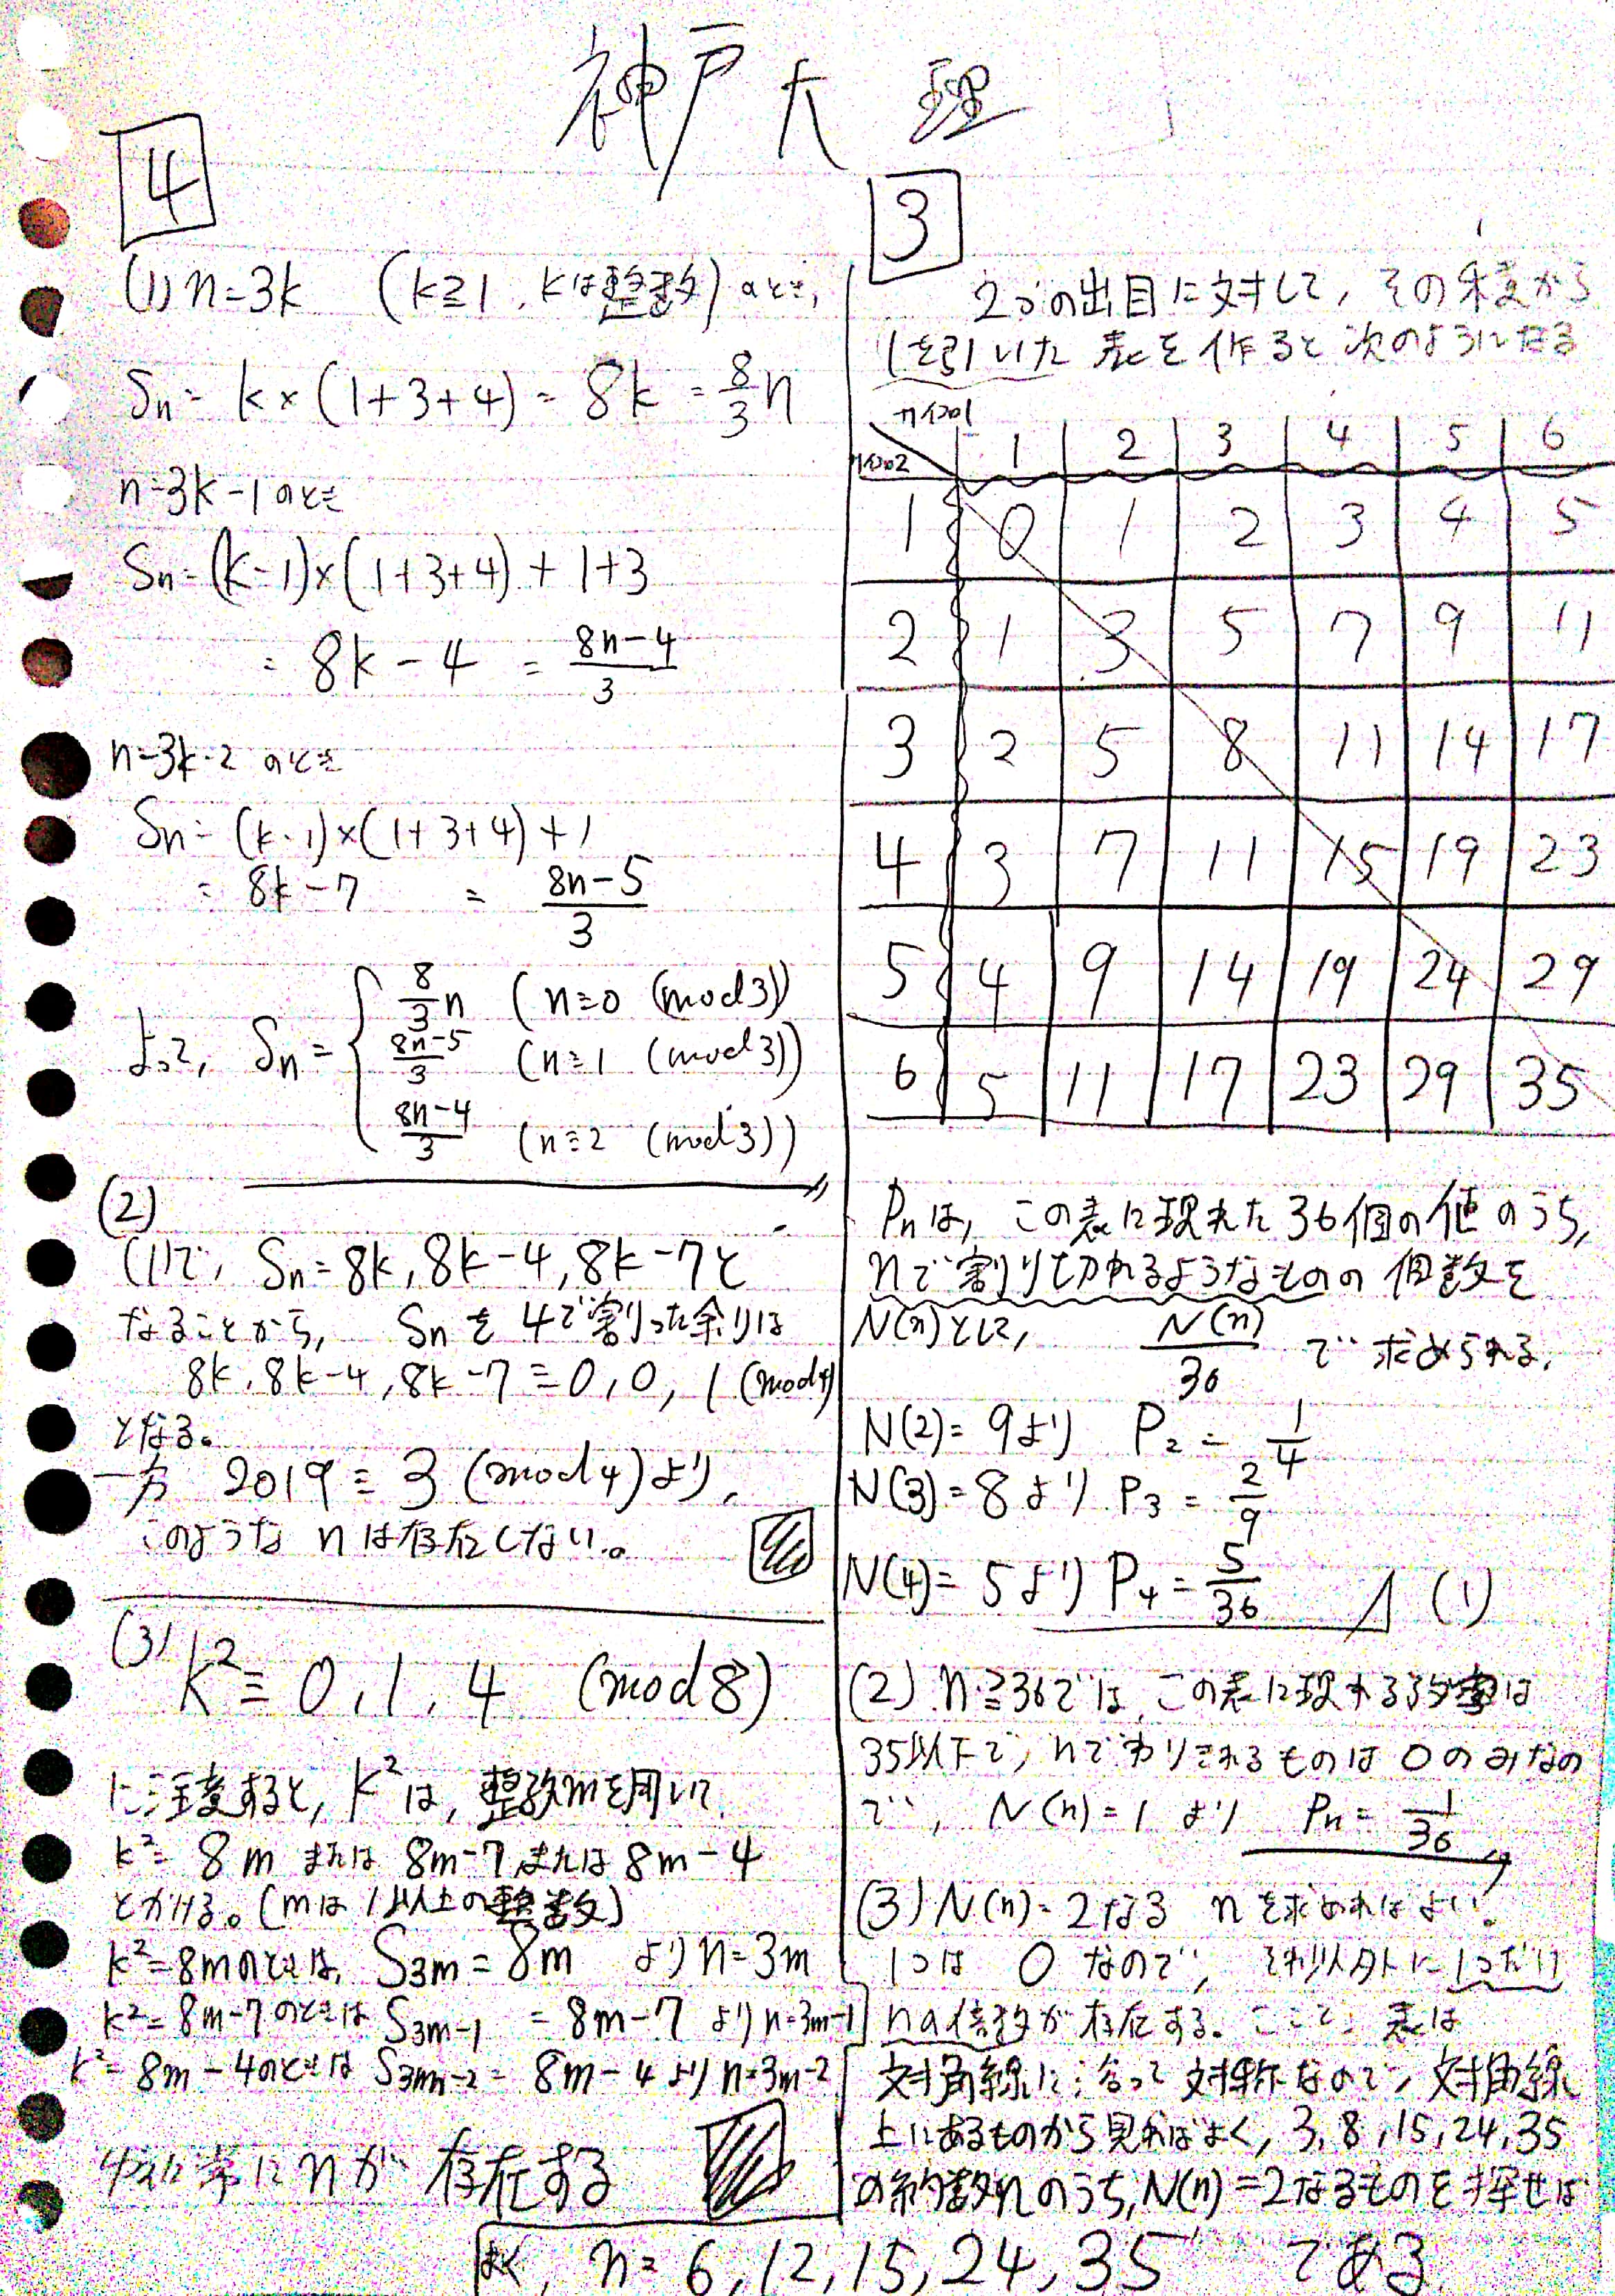 神戸大 理
4
(1) n=3k (k≧1, kは整数) のとき,
Sn = k×(1+3+4) = 8k = 8/3 n
n=3k-1のとき
Sn=(k-1)×(1+3+4)+1+3
= 8k-4 = (8n-4)/3
n=3k-2 のとき
Sn = (k-1)×(1+3+4)+1
= 8k-7 = (8n-5)/3
よって, Sn = { 8/3 n (n≡0 (mod3))
(8n-5)/3 (n≡1 (mod3))
(8n-4)/3 (n≡2 (mod3))
(2)
(1)で, Sn=8k, 8k-4, 8k-7と
なることから, Snを4で割った余りは
8k, 8k-4, 8k-7≡0, 0, 1 (mod4)
となる。
一方 2019≡3 (mod4)より,
このような nは存在しない。
(3) k²≡0, 1, 4 (mod8)
に注意すると, k²は, 整数mを用いて,
k²= 8m または 8m-7 または 8m-4
とかける。(mは1以上の整数)
k²=8mのときは, S3m=8m より n=3m
k²=8m-7のときは S3m-1 = 8m-7 より n=3m-1
k²=8m-4のときは S3m-2=8m-4より n=3m-2
ゆえに常にnが存在する
3
2つの出目に対して, その積から
1を引いた 表を作ると次のようになる
サイコロ1
サイコロ2 1 2 3 4 5 6
1 0 1 2 3 4 5
2 1 3 5 7 9 11
3 2 5 8 11 14 17
4 3 7 11 15 19 23
5 4 9 14 19 24 29
6 5 11 17 23 29 35
Pnは, この表に現れた36個の値のうち,
nで割り切れるようなものの 個数を
N(n)とし, N(n)/36 で求められる.
N(2)=9より P2=1/4
N(3)=8より P3=2/9
N(4)=5より P4=5/36 (1)
(2) n≧36では, この表に現れる数は
35以下で, nでわりきれるものは0のみなの
で, N(n)=1 より Pn=1/36
(3) N(n)=2なる nを求めればよい。
1つは 0 なので, それ以外に1つだけ
nの倍数が存在する。ここで, 表は
対角線に沿って対称なので, 対角線
上にあるものから見ればよく, 3, 8, 15, 24, 35
の約数nのうち, N(n)=2なるものを探せば
よく, n=6, 12, 15, 24, 35 である